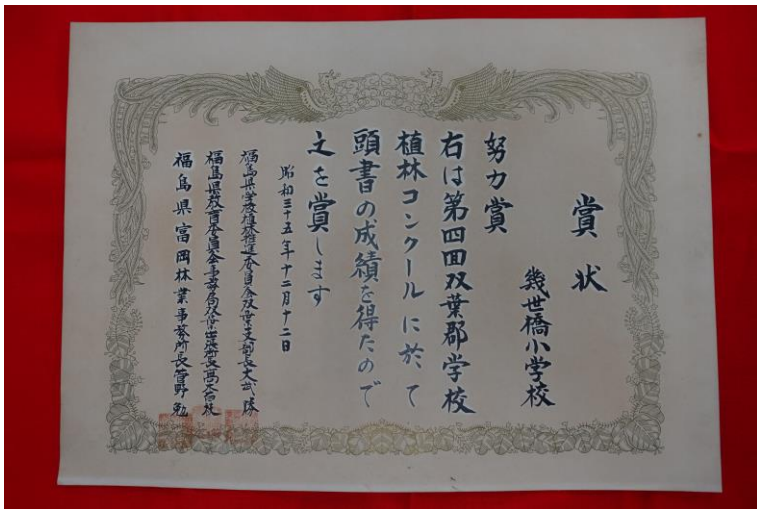 賞状
幾世橋小学校
努力賞
右は第四回双葉郡学校
植林コンクールに於て
頭書の成績を得たので
之を賞します
昭和三十五年十二月十二日
福島県学校植林推進委員会双葉支部長大武
福島県教育委員会事務局双葉出張所長
福島県富岡林業事務所長菅野勉